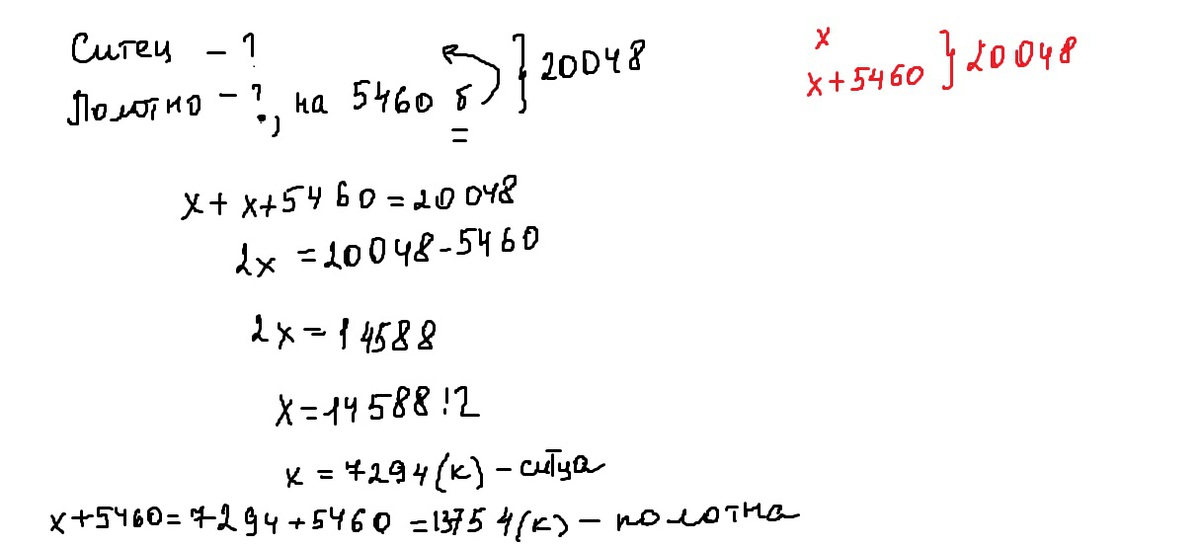 Ситец - ?
Полотно - ?, на 5460 б } 20048
x
x+5460 } 20048
x + x+5460 = 20048
2x = 20048 - 5460
2x = 14588
x = 14588 : 2
x = 7294 (к) - ситца
x+5460 = 7294 + 5460 = 13754 (к) - полотна